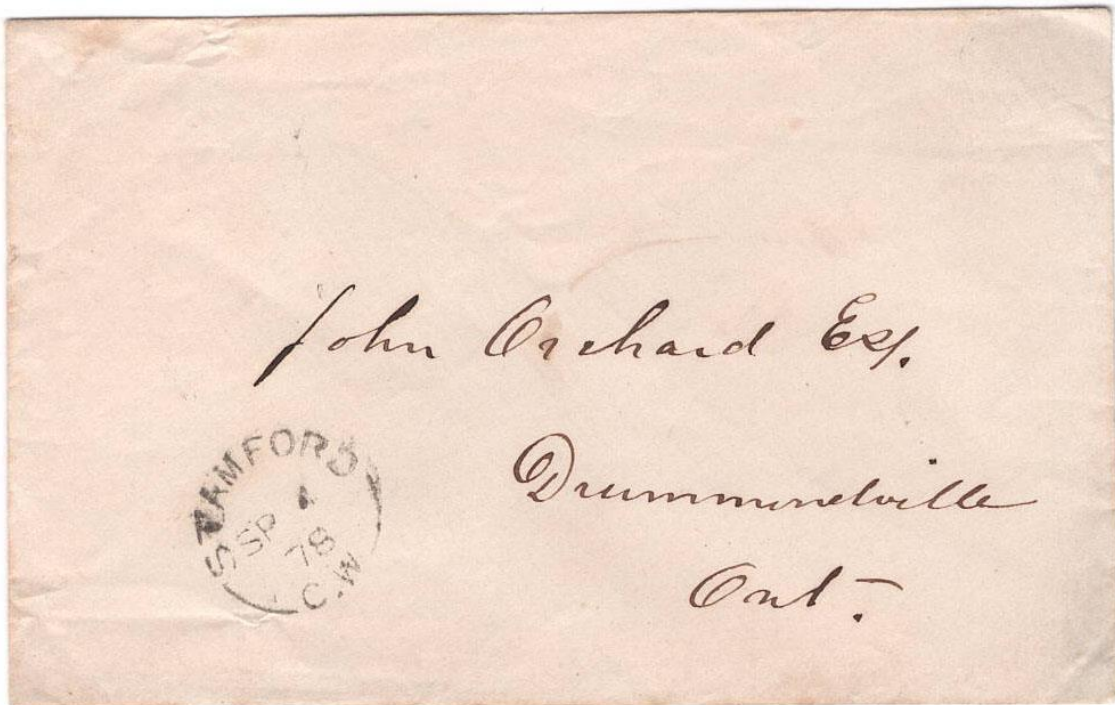 John Orchard Esq.
Drummondville
Ont.
STAMFORD
SP
78
C.W